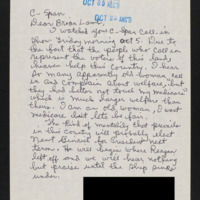 OCT 30 1983
C-Span
Dear Brian Lamb,
I watched your C-Span call-in
show Friday morning Oct 5. Due to
the fact that the people who call in
represent the voters of this land
please help this Country. I hear
so many apparently old women call
in and complain about welfare, but
they had better not touch my medicare
which is much larger welfare than
those. I am an old woman, I want
medicare but lets be fair.
The kind of mentality that prevails
in this country will probably elect
Newt President
term. He will begin where Reagan
left off and we will hear nothing
but praise until the Ship goes
under.